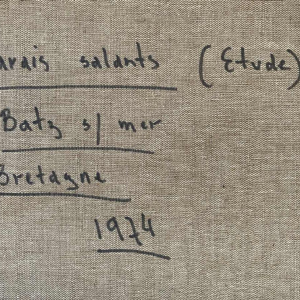 arais salants (Etude)
Batz s/ mer
Bretagne
1974